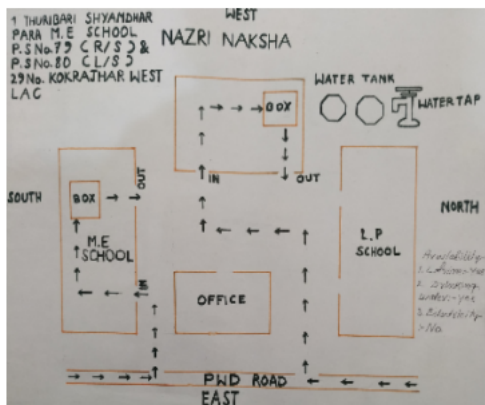 1 THURIBARI SHYAMDHAR
PARA M.E SCHOOL
P.S No. 79 (R/S) &
P.S No. 80 (L/S)
29 No. KOKRAJHAR WEST
LAC
WEST
NAZRI NAKSHA
WATER TANK
WATER TAP
BOX
IN
OUT
SOUTH
BOX
OUT
M.E
SCHOOL
IN
NORTH
L.P
SCHOOL
OFFICE
Availability
2. Drinking
water:- yes
3. Electricity
:- No
PWD ROAD
EAST